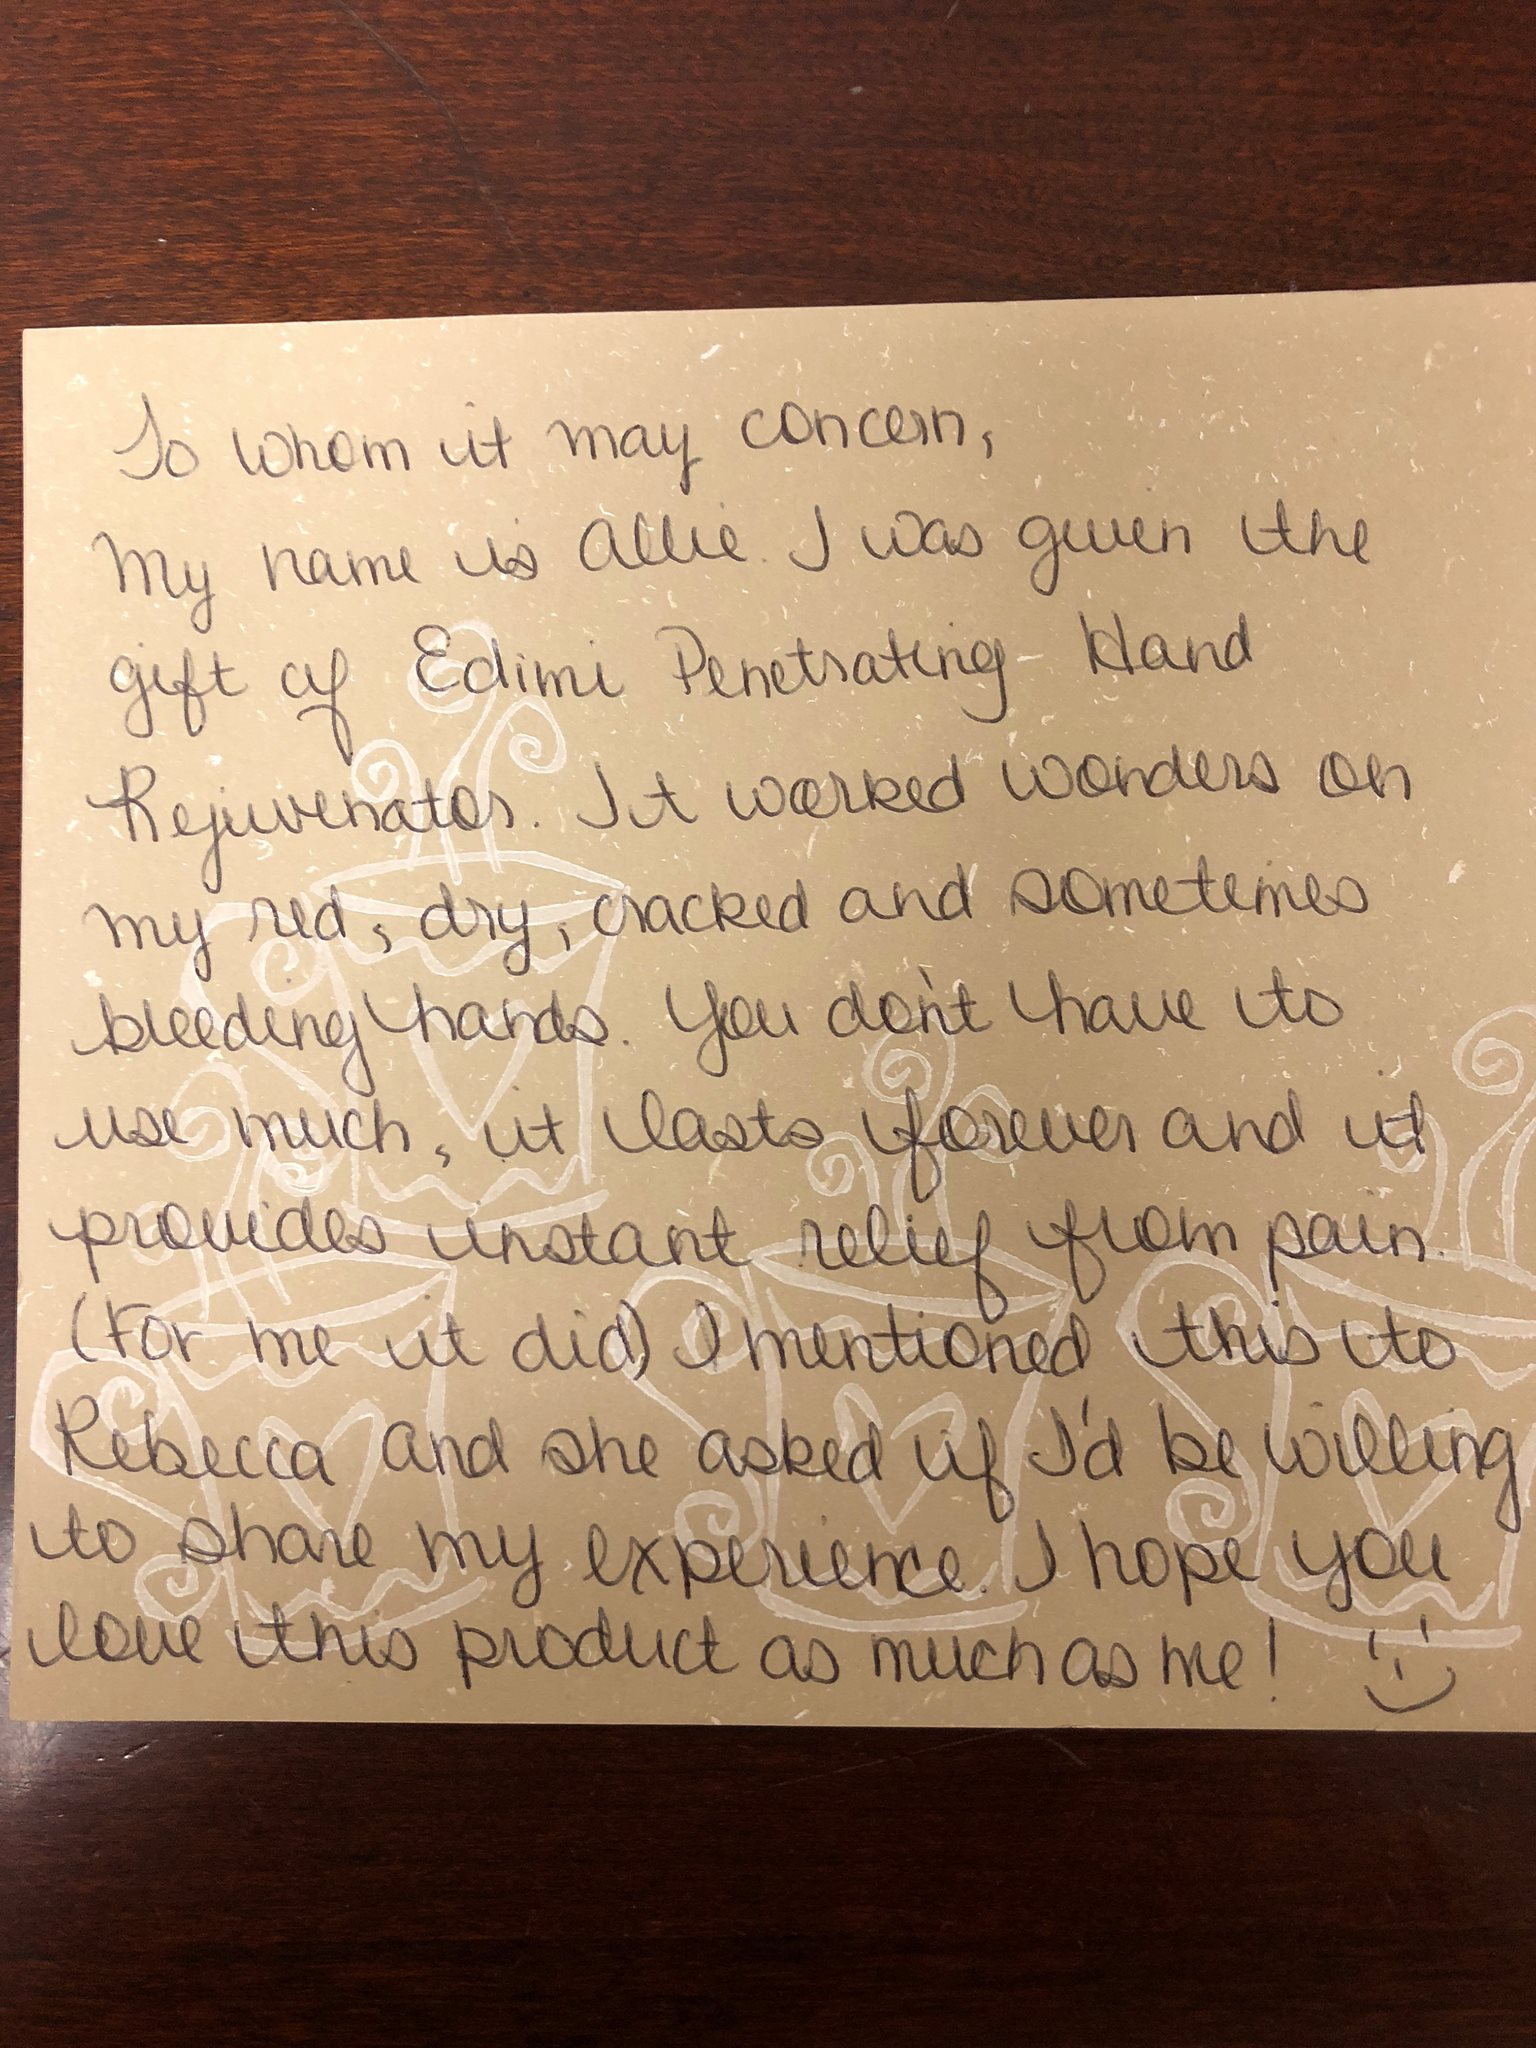 To whom it may concern,
My name is Allie. I was given the
gift of Edimi Penetrating Hand
Rejuvenator. It worked wonders on
my red, dry, cracked and sometimes
bleeding hands. You don't have to
use much, it lasts forever and it
provides instant relief from pain.
(For me it did) I mentioned this to
Rebecca and she asked if I'd be willing
to share my experience. I hope you
love this product as much as me!